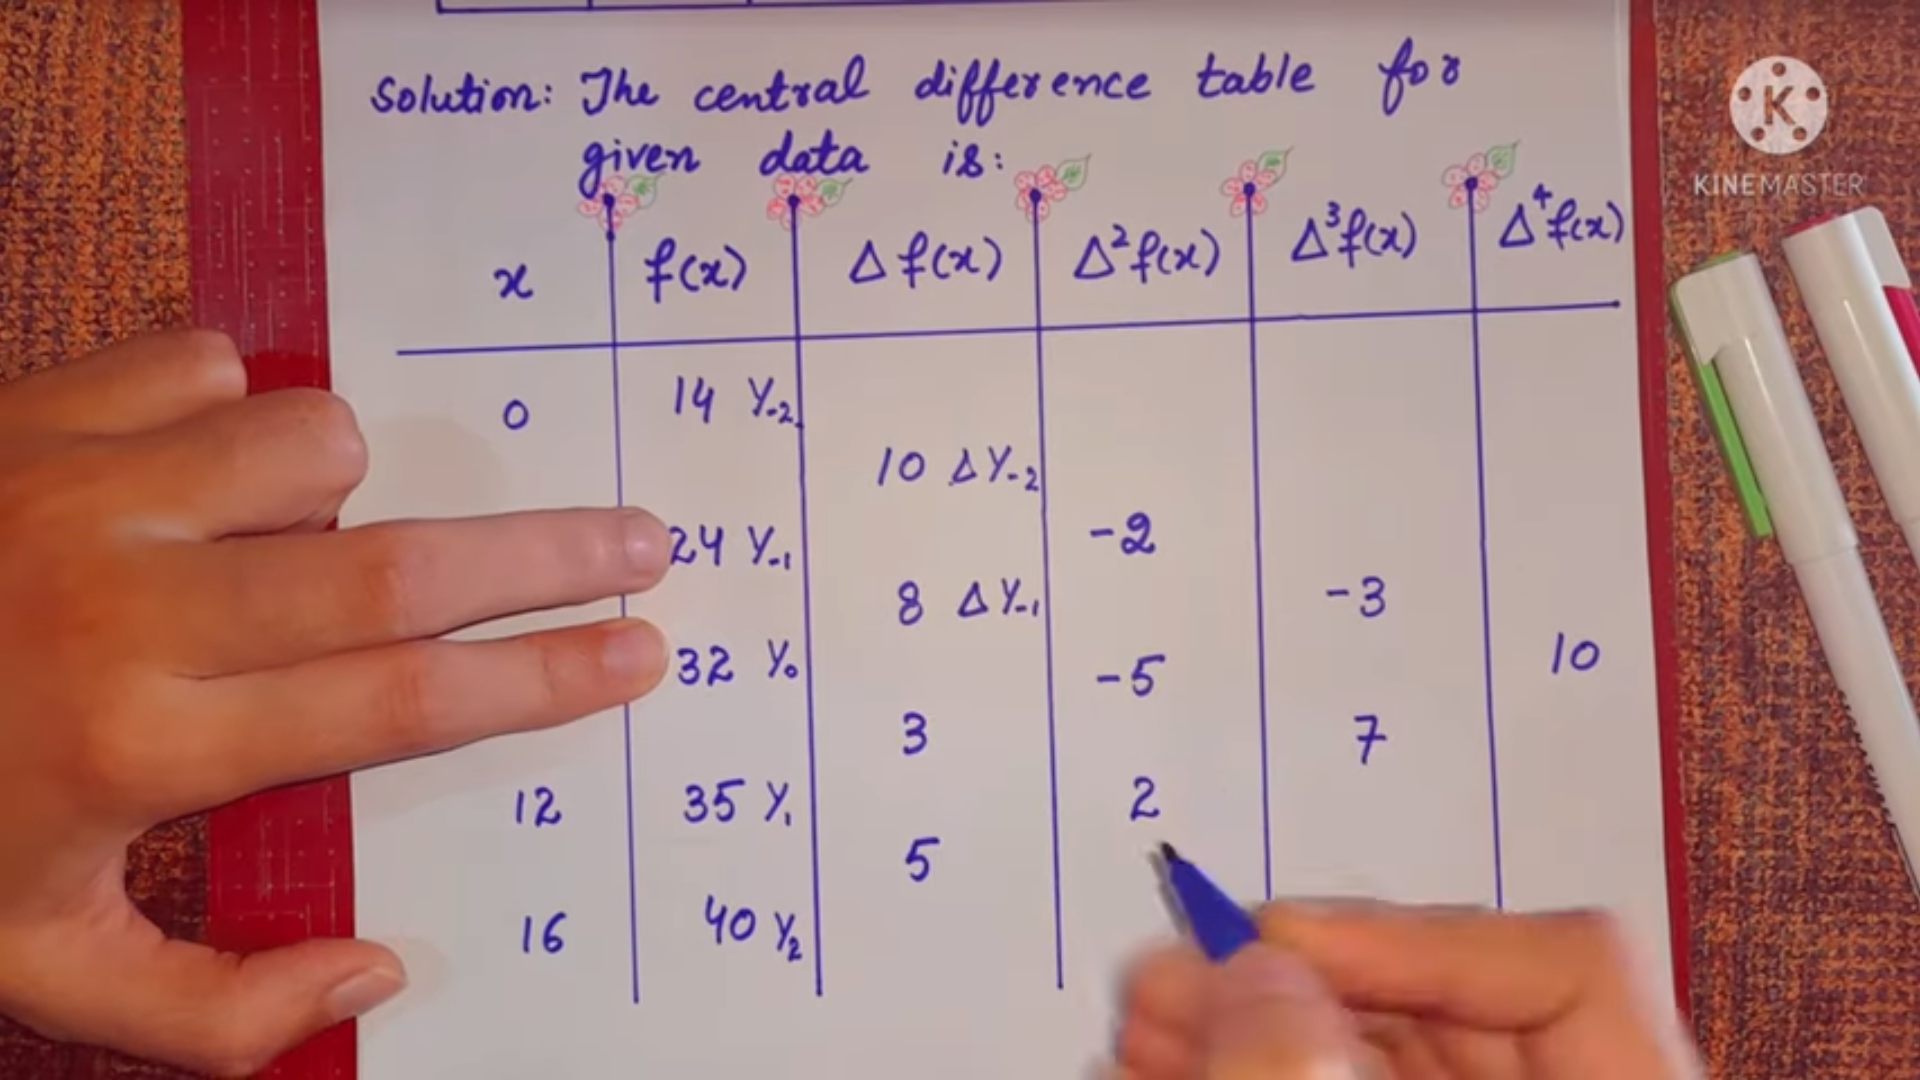 Solution: The central difference table for
given data is:
x f(x) Δf(x) Δ²f(x) Δ³f(x) Δ⁴f(x)
0 14 Y₋₂
10 ΔY₋₂
24 Y₋₁ -2
8 ΔY₋₁ -3
32 Y₀ -5 10
3 7
12 35 Y₁ 2
5
16 40 Y₂
K
KINEMASTER